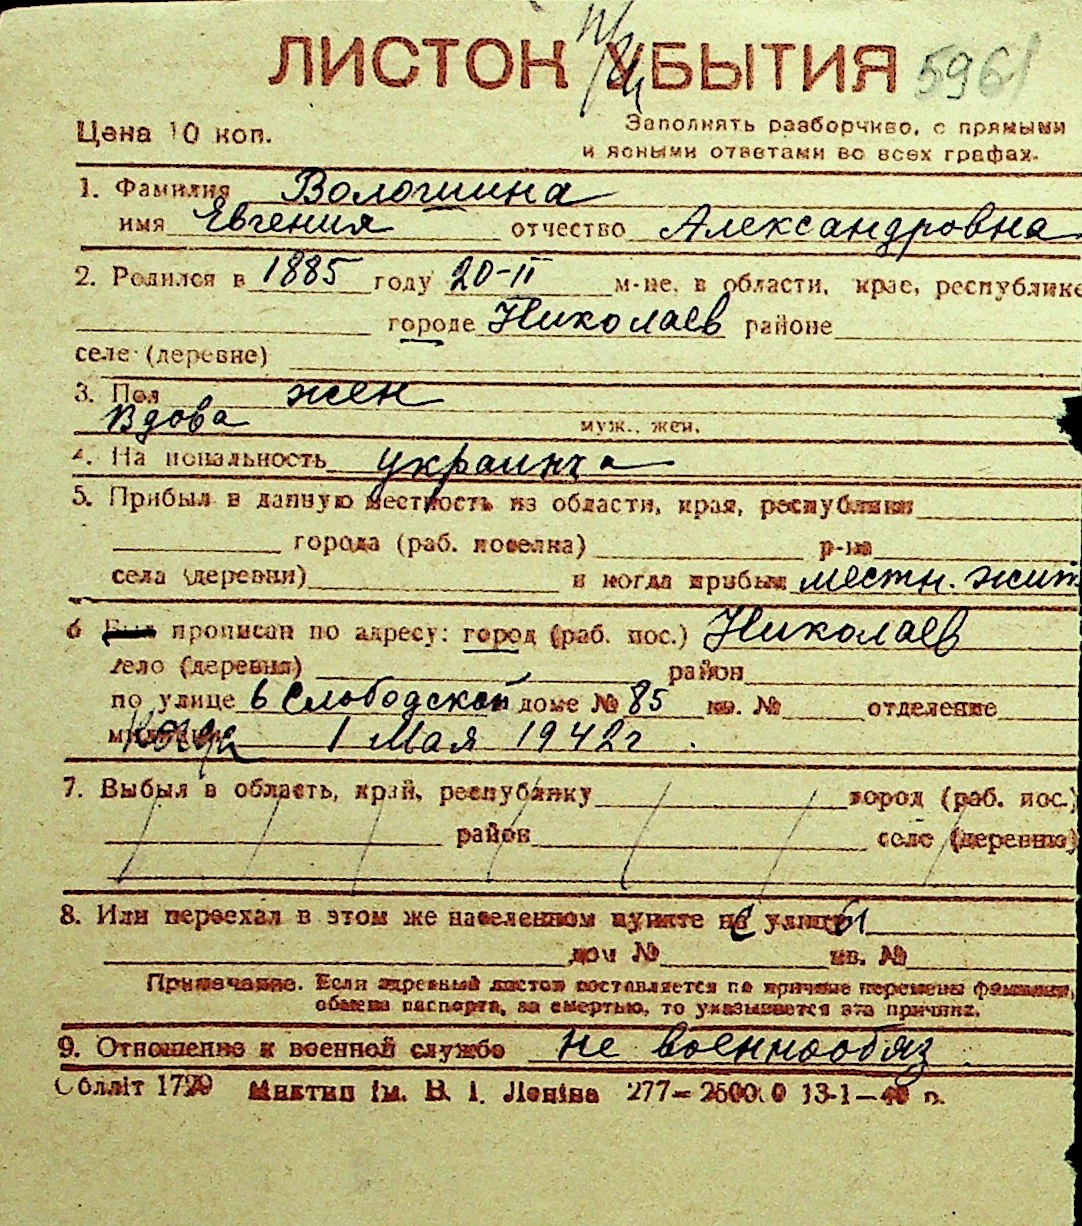 ЛИСТОК УБЫТИЯ 5961
Цена 10 коп.
Заполнять разборчиво, с прямыми
и ясными ответами во всех графах.
1. Фамилия Волошина
имя Евгения отчество Александровна
2. Родился в 1885 году 20-II м-це, в области, крае, республике
городе Николаев районе
селе (деревне)
3. Пол жен
Вдова муж., жен.
4. Национальность украинка
5. Прибыл в данную местность из области, края, республики
города (раб. поселка) р-на
села (деревни) и когда прибыл местн. жит
6 Был прописан по адресу: город (раб. пос.) Николаев
село (деревня) район
по улице 6 Слободской доме № 85 кв. № отделение
Когда 1 Мая 1942г.
7. Выбыл в область, край, республику город (раб. пос.)
район село (деревню)
8. Или переехал в этом же населенном пункте с улицы
дом № кв. №
Примечание. Если адресный листок составляется по причине перемены фамилии,
обмена паспорта, за смертью, то указывается эта причина.
9. Отношение к военной службе не военнообяз
Обллiт 1729 Миктип iм. В. I. Ленiна 277—25000 13-1—